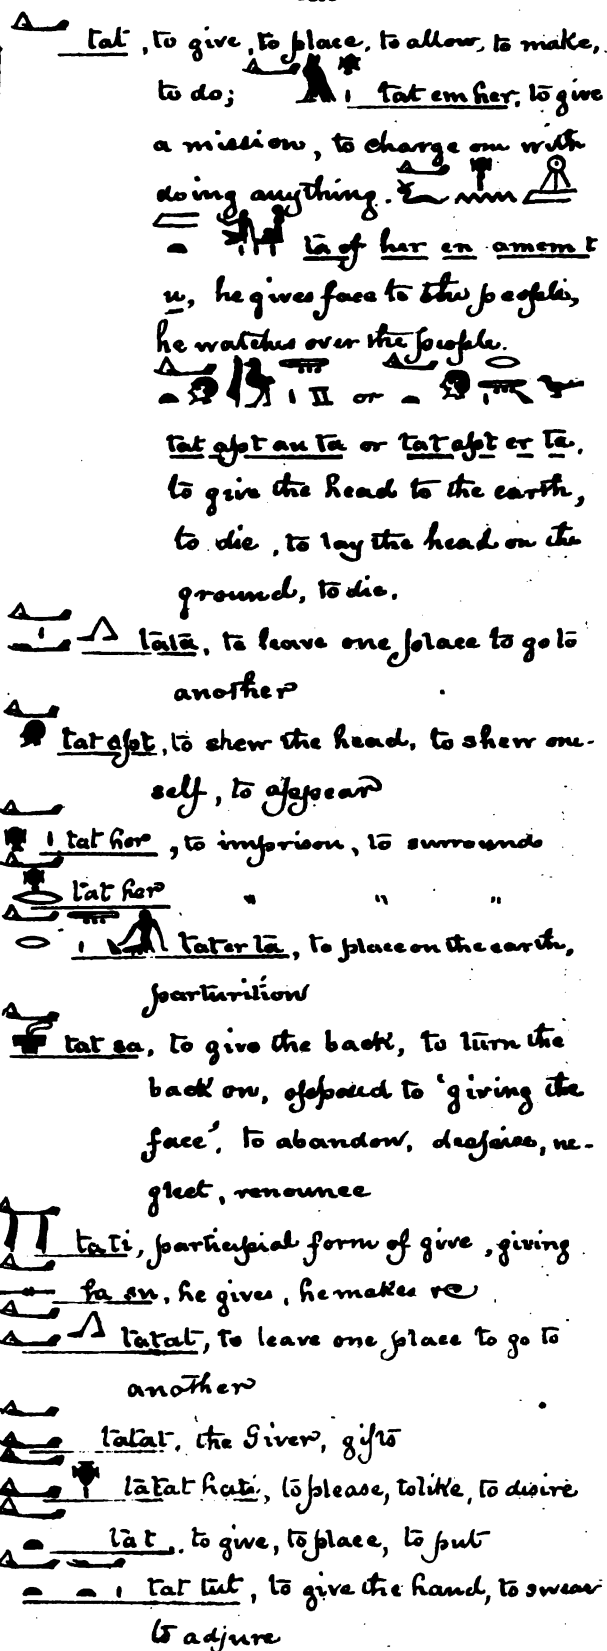 tat, to give, to place, to allow, to make,
to do; tat em her, to give
a mission, to charge one with
doing anything.
ta of her en amem t
u, he gives face to the people,
he watches over the people.
or
tat apt au ta or tat apt er ta,
to give the head to the earth,
to die, to lay the head on the
ground, to die.
tata, to leave one place to go to
another
tat apt, to shew the head, to shew one-
self, to appear
tat her, to imprison, to surround
tat her " " "
tat er ta, to place on the earth,
parturition
tat sa, to give the back, to turn the
back on, opposed to 'giving the
face', to abandon, despise, ne-
glect, renounce
ta ti, participial form of give, giving
ta sn, he gives, he makes
tatat, to leave one place to go to
another
tatat, the Giver, gifts
tatat hati, to please, to like, to desire
tat, to give, to place, to put
tat tut, to give the hand, to swear
to adjure